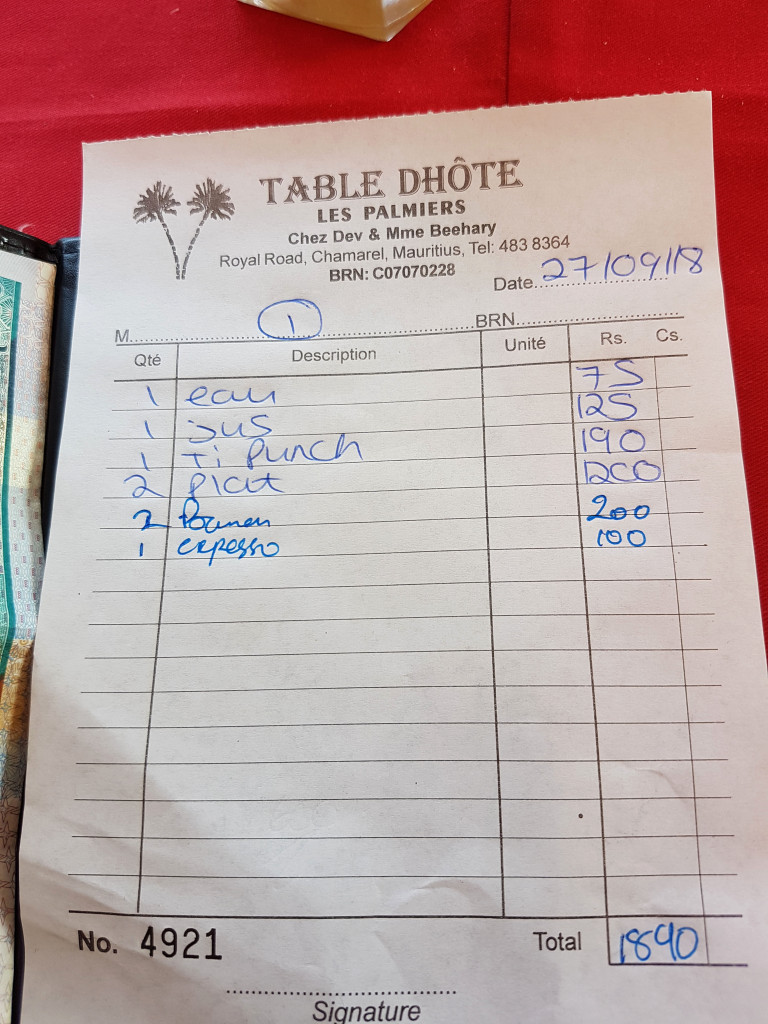 TABLE DHÔTE
LES PALMIERS
Chez Dev & Mme Beehary
Royal Road, Chamarel, Mauritius, Tel: 483 8364
BRN: C07070228
Date 27/09/18
M. 1 BRN
Qté Description Unité Rs. Cs.
1 eau 75
1 Jus 125
1 Ti Punch 190
2 Plat 1200
2 200
1 expesso 100
No. 4921 Total 1890
Signature